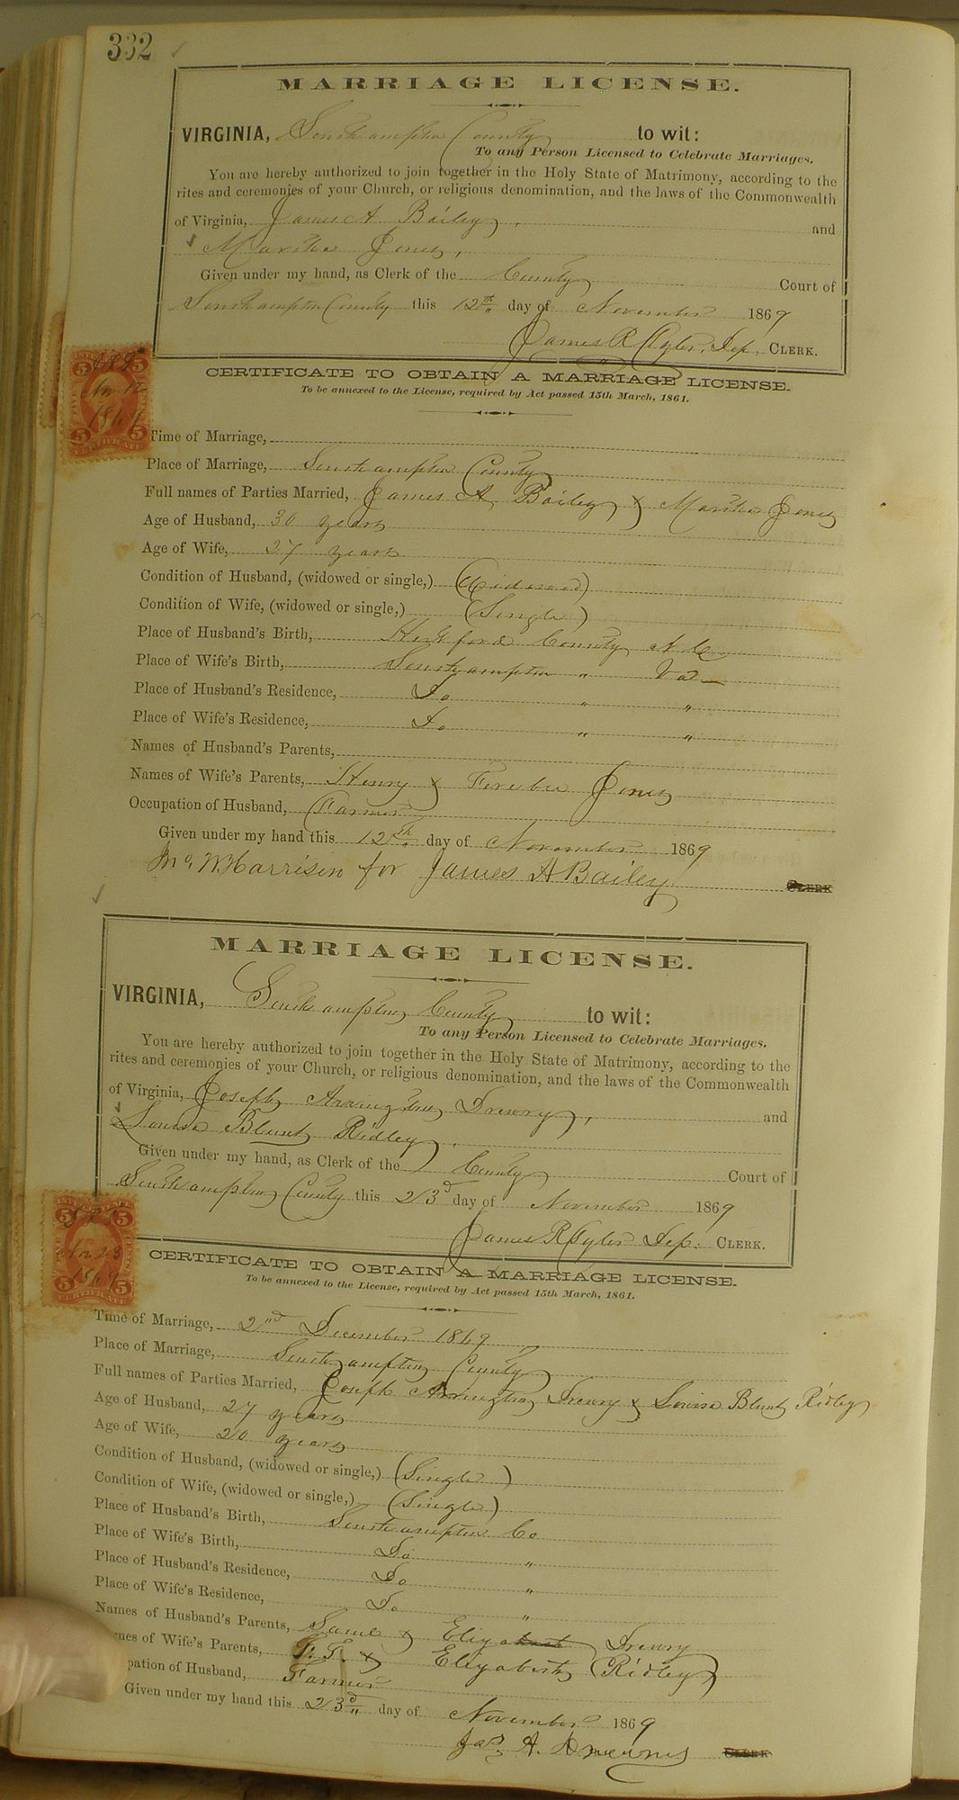 332
MARRIAGE LICENSE.
VIRGINIA, Southampton County to wit:
To any Person Licensed to Celebrate Marriages.
You are hereby authorized to join together in the Holy State of Matrimony, according to the
rites and ceremonies of your Church, or religious denomination, and the laws of the Commonwealth
of Virginia, James A Bailey, and
Martha Jones,
Given under my hand, as Clerk of the County Court of
Southampton County this 12th day of November 1869
James R Tyler, Dep. CLERK.
CERTIFICATE TO OBTAIN A MARRIAGE LICENSE.
To be annexed to the License, required by Act passed 15th March, 1861.
Time of Marriage,
Place of Marriage, Southampton County
Full names of Parties Married, James A Bailey & Martha Jones
Age of Husband, 30 years
Age of Wife, 27 years
Condition of Husband, (widowed or single,) (Widowed)
Condition of Wife, (widowed or single,) (Single)
Place of Husband's Birth, Hertford County N.C.
Place of Wife's Birth, Southampton " Va
Place of Husband's Residence, Do " "
Place of Wife's Residence, Do " "
Names of Husband's Parents,
Names of Wife's Parents, Henry & Jones
Occupation of Husband, Farmer
Given under my hand this 12th day of November 1869
Harrison for James A Bailey CLERK
MARRIAGE LICENSE.
VIRGINIA, Southampton County to wit:
To any Person Licensed to Celebrate Marriages.
You are hereby authorized to join together in the Holy State of Matrimony, according to the
rites and ceremonies of your Church, or religious denomination, and the laws of the Commonwealth
of Virginia, Joseph Arrington Drewry, and
Louisa Blunt Ridley,
Given under my hand, as Clerk of the County Court of
Southampton County this 23d day of November 1869
James R Tyler Dep. CLERK.
CERTIFICATE TO OBTAIN A MARRIAGE LICENSE.
To be annexed to the License, required by Act passed 15th March, 1861.
Time of Marriage, 2nd December 1869
Place of Marriage, Southampton County
Full names of Parties Married, Joseph Arrington Drewry & Louisa Blunt Ridley
Age of Husband, 27 years
Age of Wife, 20 years
Condition of Husband, (widowed or single,) (Single)
Condition of Wife, (widowed or single,) (Single)
Place of Husband's Birth, Southampton Co
Place of Wife's Birth, Do "
Place of Husband's Residence, Do "
Place of Wife's Residence, Do "
Names of Husband's Parents, Saml & Eliza Drewry
mes of Wife's Parents, & Elizabeth Ridley
pation of Husband, Farmer
Given under my hand this 23d day of November 1869
Jas. A. CLERK